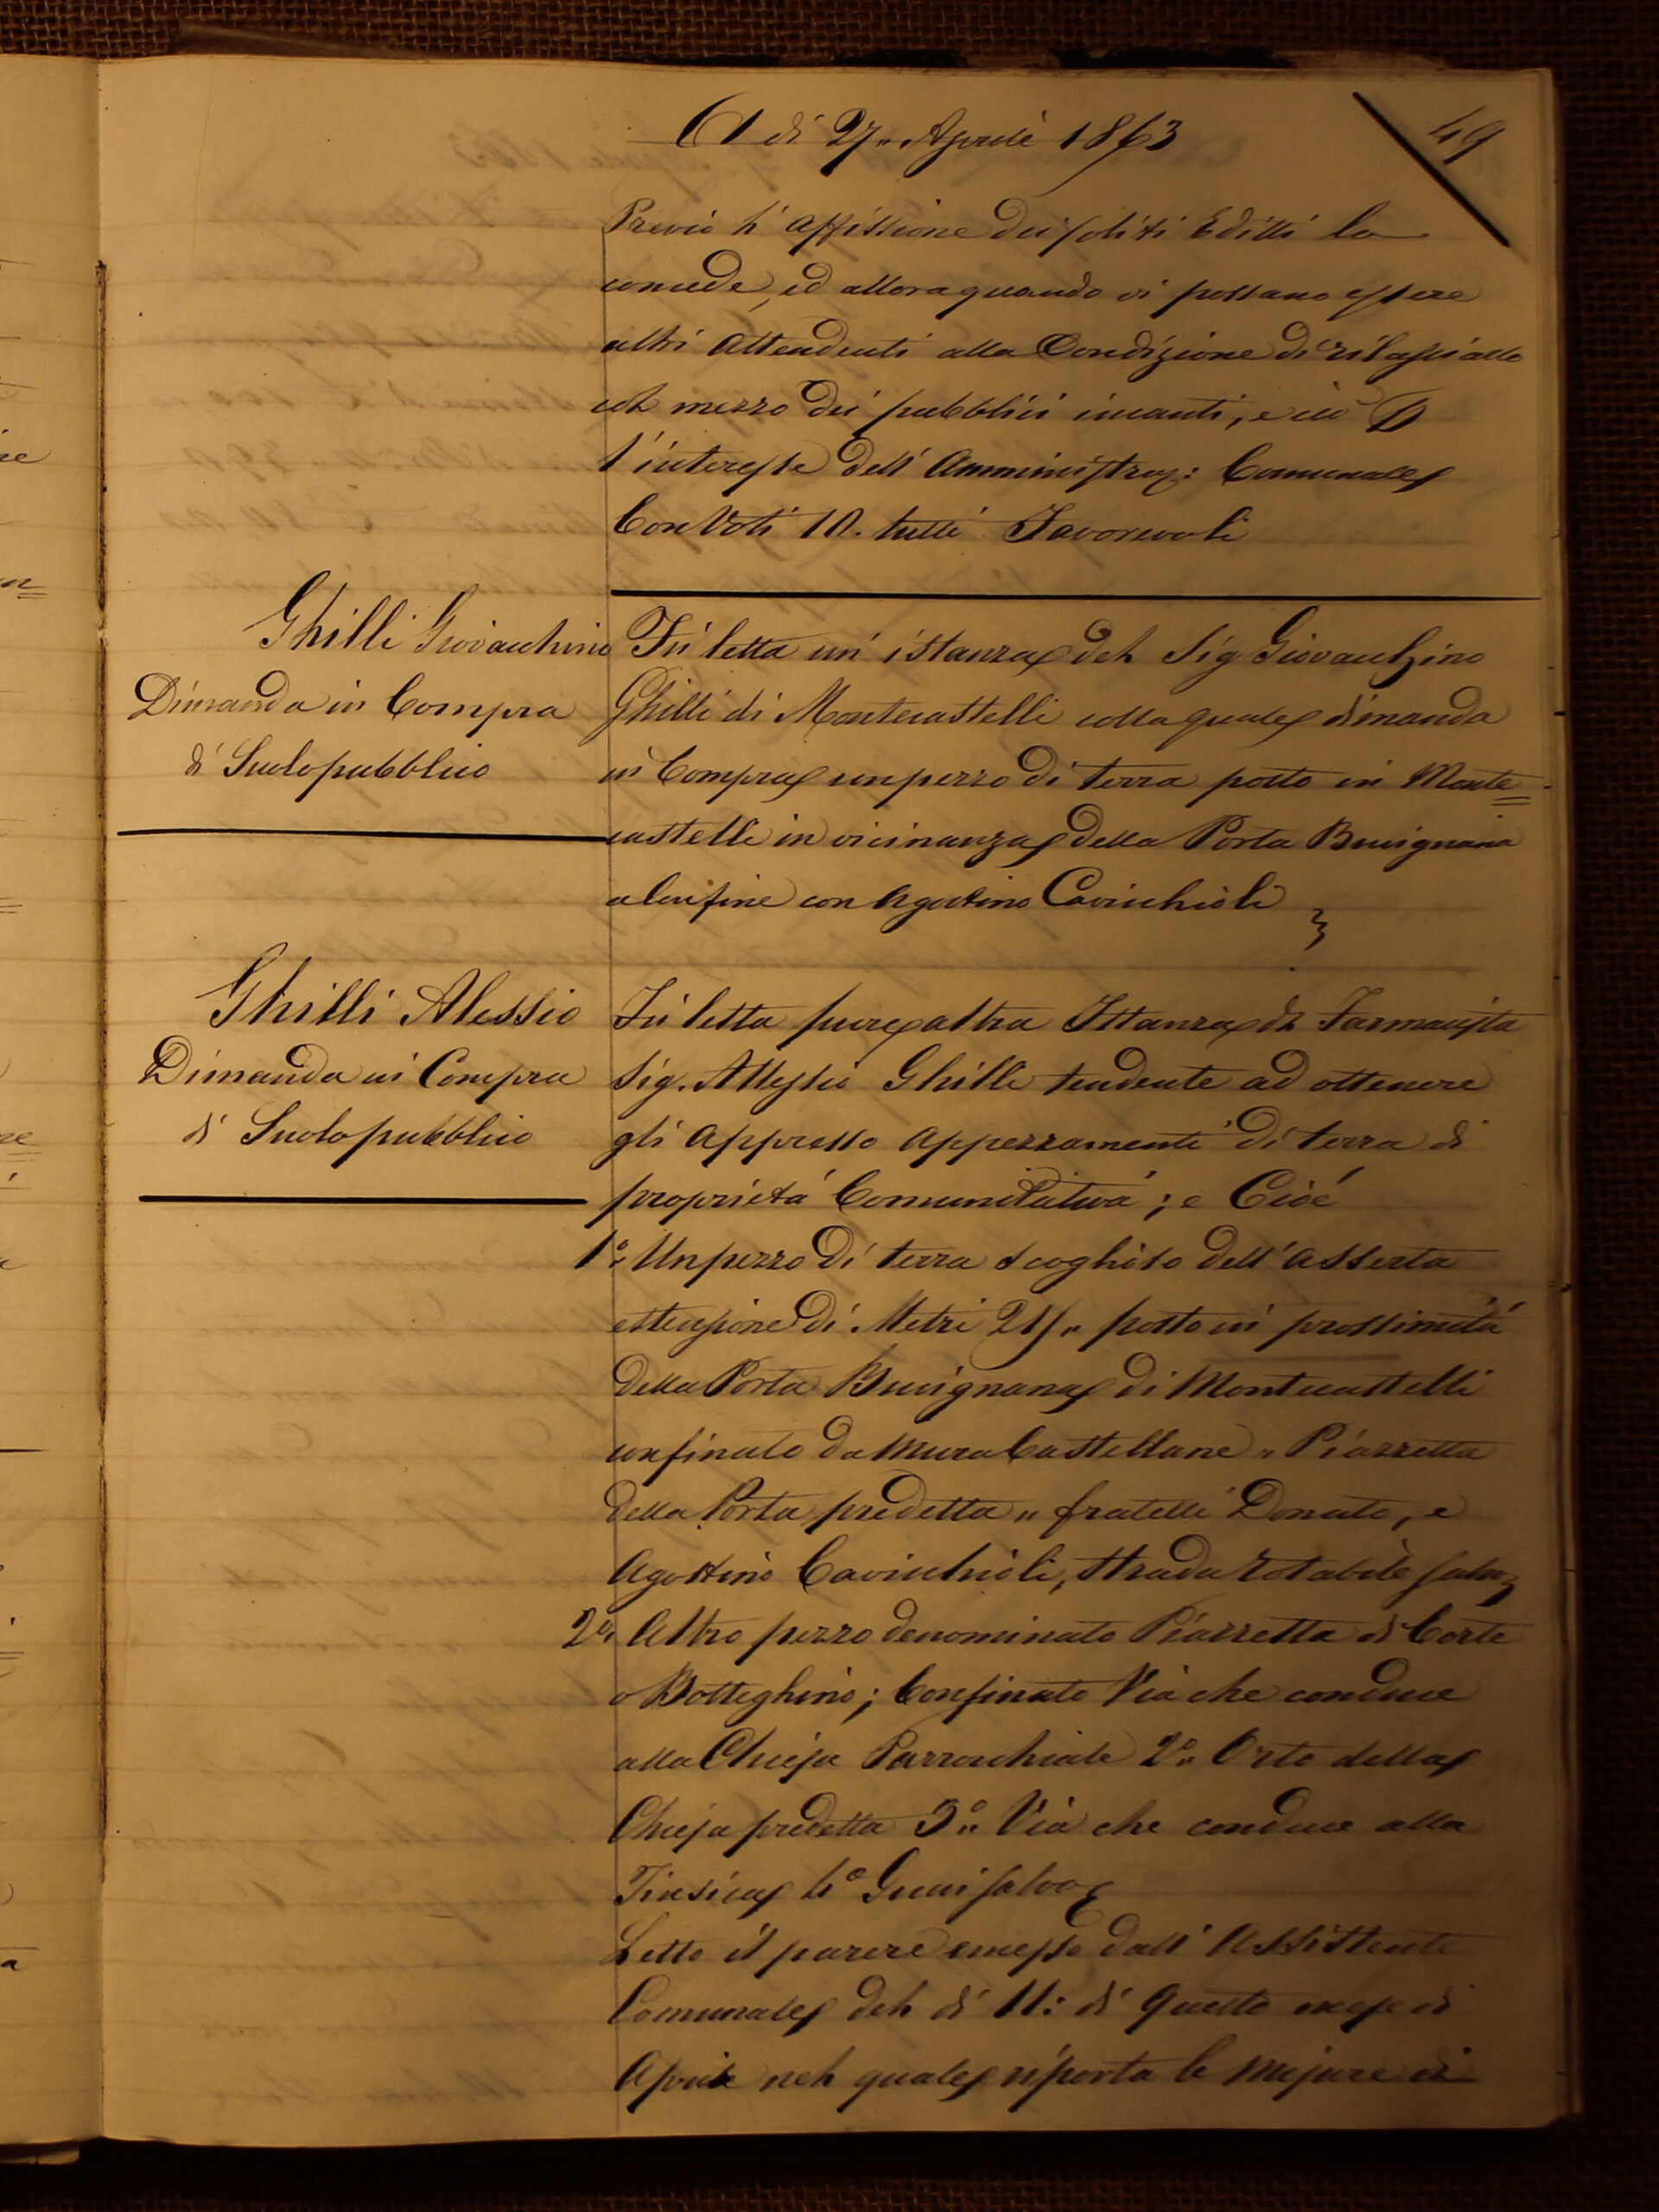 A di 27 „ Aprile 1863
49
Previo l'affissione dei soliti Editti lo
concede, ed allora quando vi possano essere
altri attendenti alla Condizione di rilasciallo
col mezzo dei pubblici incanti, e ciò p
l'interesse dell'Amministraz: Comunale
Con Voti 10. tutti Favorevoli
Ghilli Giovacchino
Dimanda in Compra
di Suolo pubblico
Fù letta un' istanza del Sig Giovacchino
Ghilli di Montecastelli colla quale dimanda
in Compra un pezzo di terra posto in Monte=
castelli in vicinanza della Porta Bucignana
a Confine con Agostino Cavicchioli
Ghilli Alessio
Dimanda in Compra
di Suolo pubblico
Fù letta pure altra Istanza del Farmacista
Sig. Allessio Ghilli tendente ad ottenere
gli appresso appezzamenti di terra di
proprietá Comunitativa; e Cioé
1º. Un pezzo di terra scoglioso dell'asserta
estensione di Metri „ posto in prossimitá
della Porta Bucignana di Montecastelli
confinato da Mura Castellane „ Piazzetta
della Porta predetta „ fratelli Donato, e
Agostino Cavicchioli, strada rotabile salvo
2º. Altro pezzo denominato Piazzetta di Corte
o Botteghino; Confinato Via che conduce
alla Chiesa Parrocchiale 2º „ Orto della
Chiesa predetta 3º „ Via che conduce alla
4º salvo
Letto il parere emesso dall'Assistente
Comunale del dì 11: di Questo mese di
Aprile nel quale riporta le Misure di